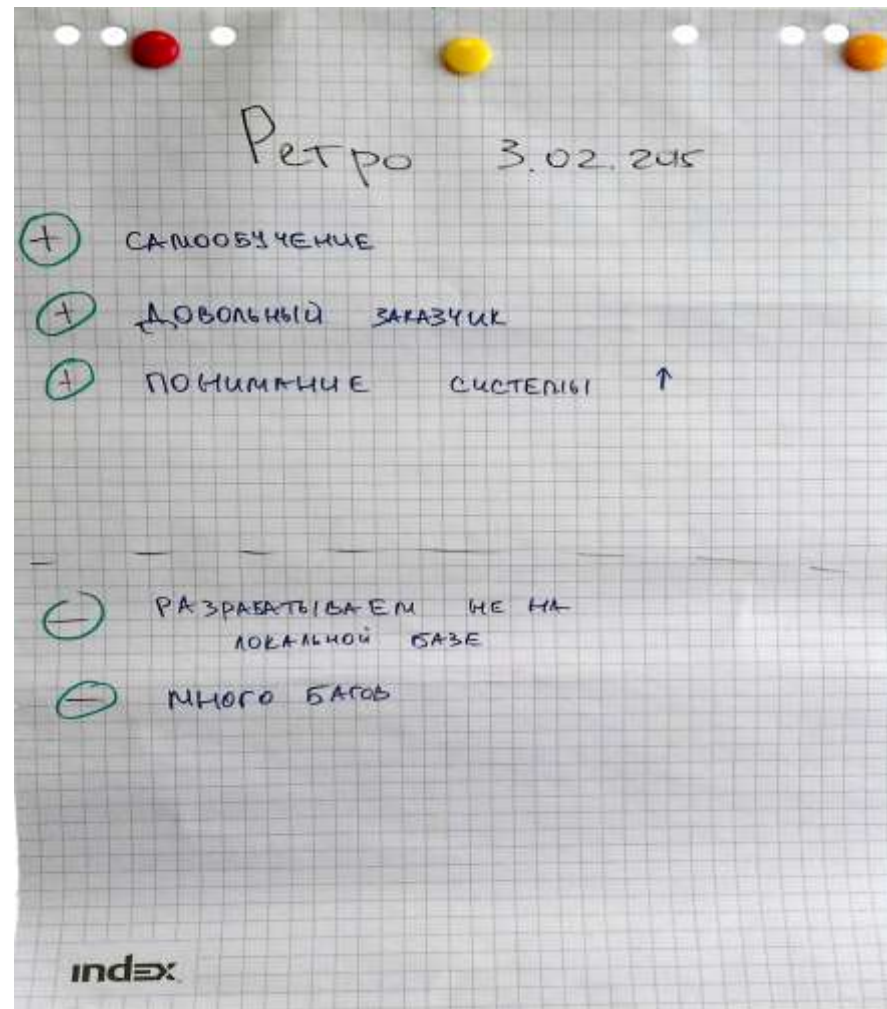 Ретро 3.02.2015
+ САМООБУЧЕНИЕ
+ ДОВОЛЬНЫЙ ЗАКАЗЧИК
+ ПОНИМАНИЕ СИСТЕМЫ ↑
- РАЗРАБАТЫВАЕМ НЕ НА
ЛОКАЛЬНОЙ БАЗЕ
- МНОГО БАГОВ
index